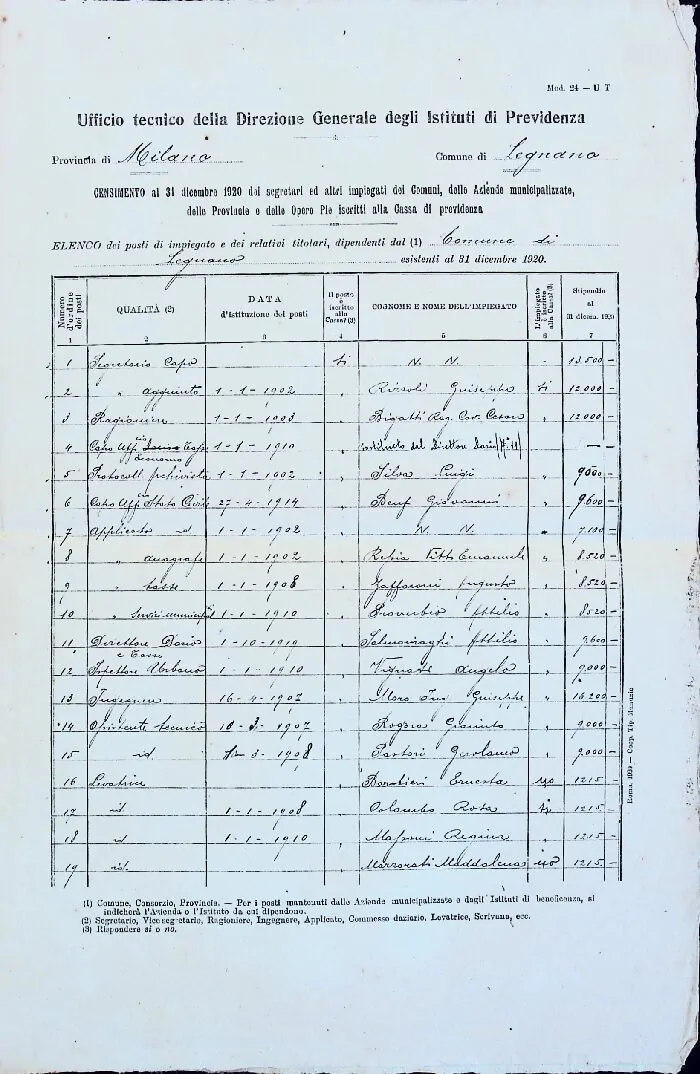 Mod. 24 — U T
Ufficio tecnico della Direzione Generale degli Istituti di Previdenza
Provincia di Milano Comune di Legnano
CENSIMENTO al 31 dicembre 1920 dei segretari ed altri impiegati dei Comuni, delle Aziende municipalizzate,
delle Provincie e delle Opere Pie iscritti alla Cassa di previdenza
ELENCO dei posti di impiegato e dei relativi titolari, dipendenti dal (1) Comune di
Legnano esistenti al 31 dicembre 1920.
Numero d'ordine dei posti QUALITÀ (2) DATA d'istituzione dei posti Il posto è iscritto alla Cassa? (3) COGNOME E NOME DELL'IMPIEGATO L'impiegato è iscritto alla Cassa? (3) Stipendio al 31 dicem. 1920
1 2 3 4 5 6 7
1 Segretario Capo si N. N. - 13.500 —
2 " aggiunto 1 - 1 - 1902 " Giuseppe si 12.000 —
3 Ragioniere 1 - 1 - 1903 " Bigatti Rag. Cav. Cesare " 12.000 —
4 Capo Uff. Economo 1 - 1 - 1910 " del Direttore Dazio (N° 11) — —
5 Protocoll. Archivista 1 - 1 - 1902 " Silva Luigi " 9000 —
6 Capo Uff. Stato Civile 27 - 4 - 1914 " Giovanni " 9600 —
7 Applicato id. 1 - 1 - 1902 " N. N. " 7.100 —
8 " anagrafe 1 - 1 - 1902 " Emanuele " 8.520 —
9 " tasse 1 - 1 - 1908 " Zaffaroni Augusto " 8.520 —
10 " Servizi municipali 1 - 1 - 1910 " Proverbio Attilio " 8520 —
11 Direttore Dazio e Tasse 1 - 10 - 1919 " Salmoiraghi Attilio " 9.600 —
12 Ispettore Urbano 1 - 1 - 1910 " Vignati Angelo " 9.000 —
13 Ingegnere 16 - 4 - 1907 " Moro Ing. Giuseppe " 16.200 —
14 Assistente tecnico 18 - 3 - 1907 " Giacinto " 9.000 —
15 id. 3 - 1908 " Sartori Gerolamo " 9.000 —
16 Levatrice Barbieri Ernesta no 1215 —
17 id 1 - 1 - 1908 " Colombo Rosa si 1215 —
18 id 1 - 1 - 1910 " Massoni Regina " 1215 —
19 id. Marzorati Maddalena no 1215 —
Roma, 1920 — Coop. Tip. Manuzio
(1) Comune, Consorzio, Provincia. — Per i posti mantenuti dalle Aziende municipalizzate e dagli Istituti di beneficenza, si
indicherà l'Azienda o l'Istituto da cui dipendono.
(2) Segretario, Vice segretario, Ragioniere, Ingegnere, Applicato, Commesso daziario, Levatrice, Scrivano, ecc.
(3) Rispondere si o no.